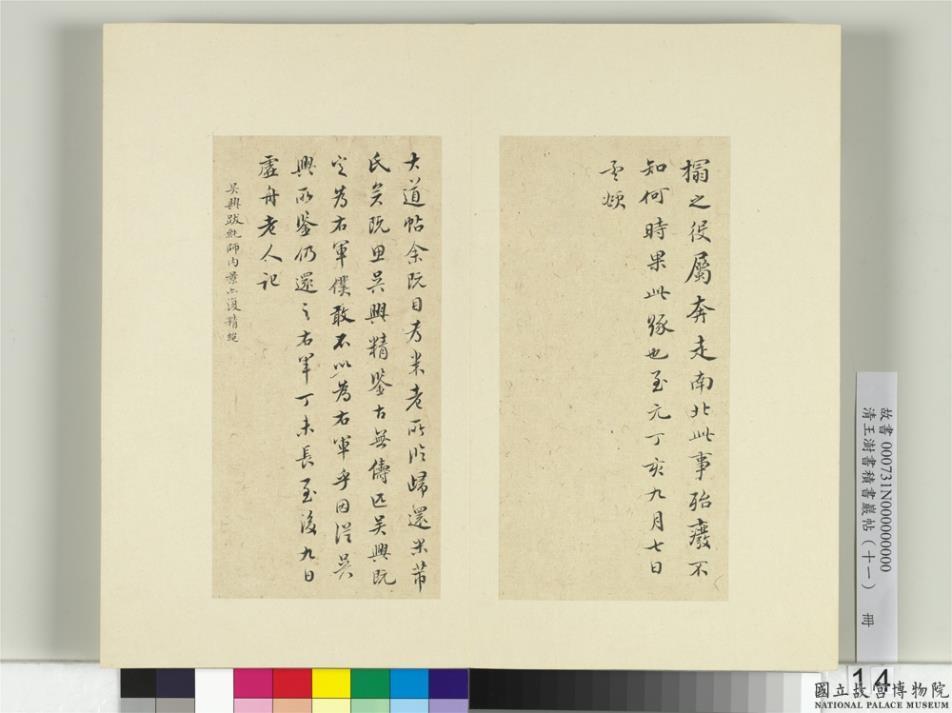 搨之役屬奔走南北此事殆廢不
知何時果此緣也至元丁亥九月七日
孟頫
大道帖余既目為米老所臨歸還米芾
氏矣既思吳興精鑒古無儔匹吳興既
定為右軍僕敢不以為右軍乎因從吳
興所鑒仍還之右軍丁未長至後九日
虛舟老人記
吳興跋純師內景亦復精絕
故書 000731N000000000
清王澍書積書巖帖（十一） 冊
14
國立故宮博物院
NATIONAL PALACE MUSEUM